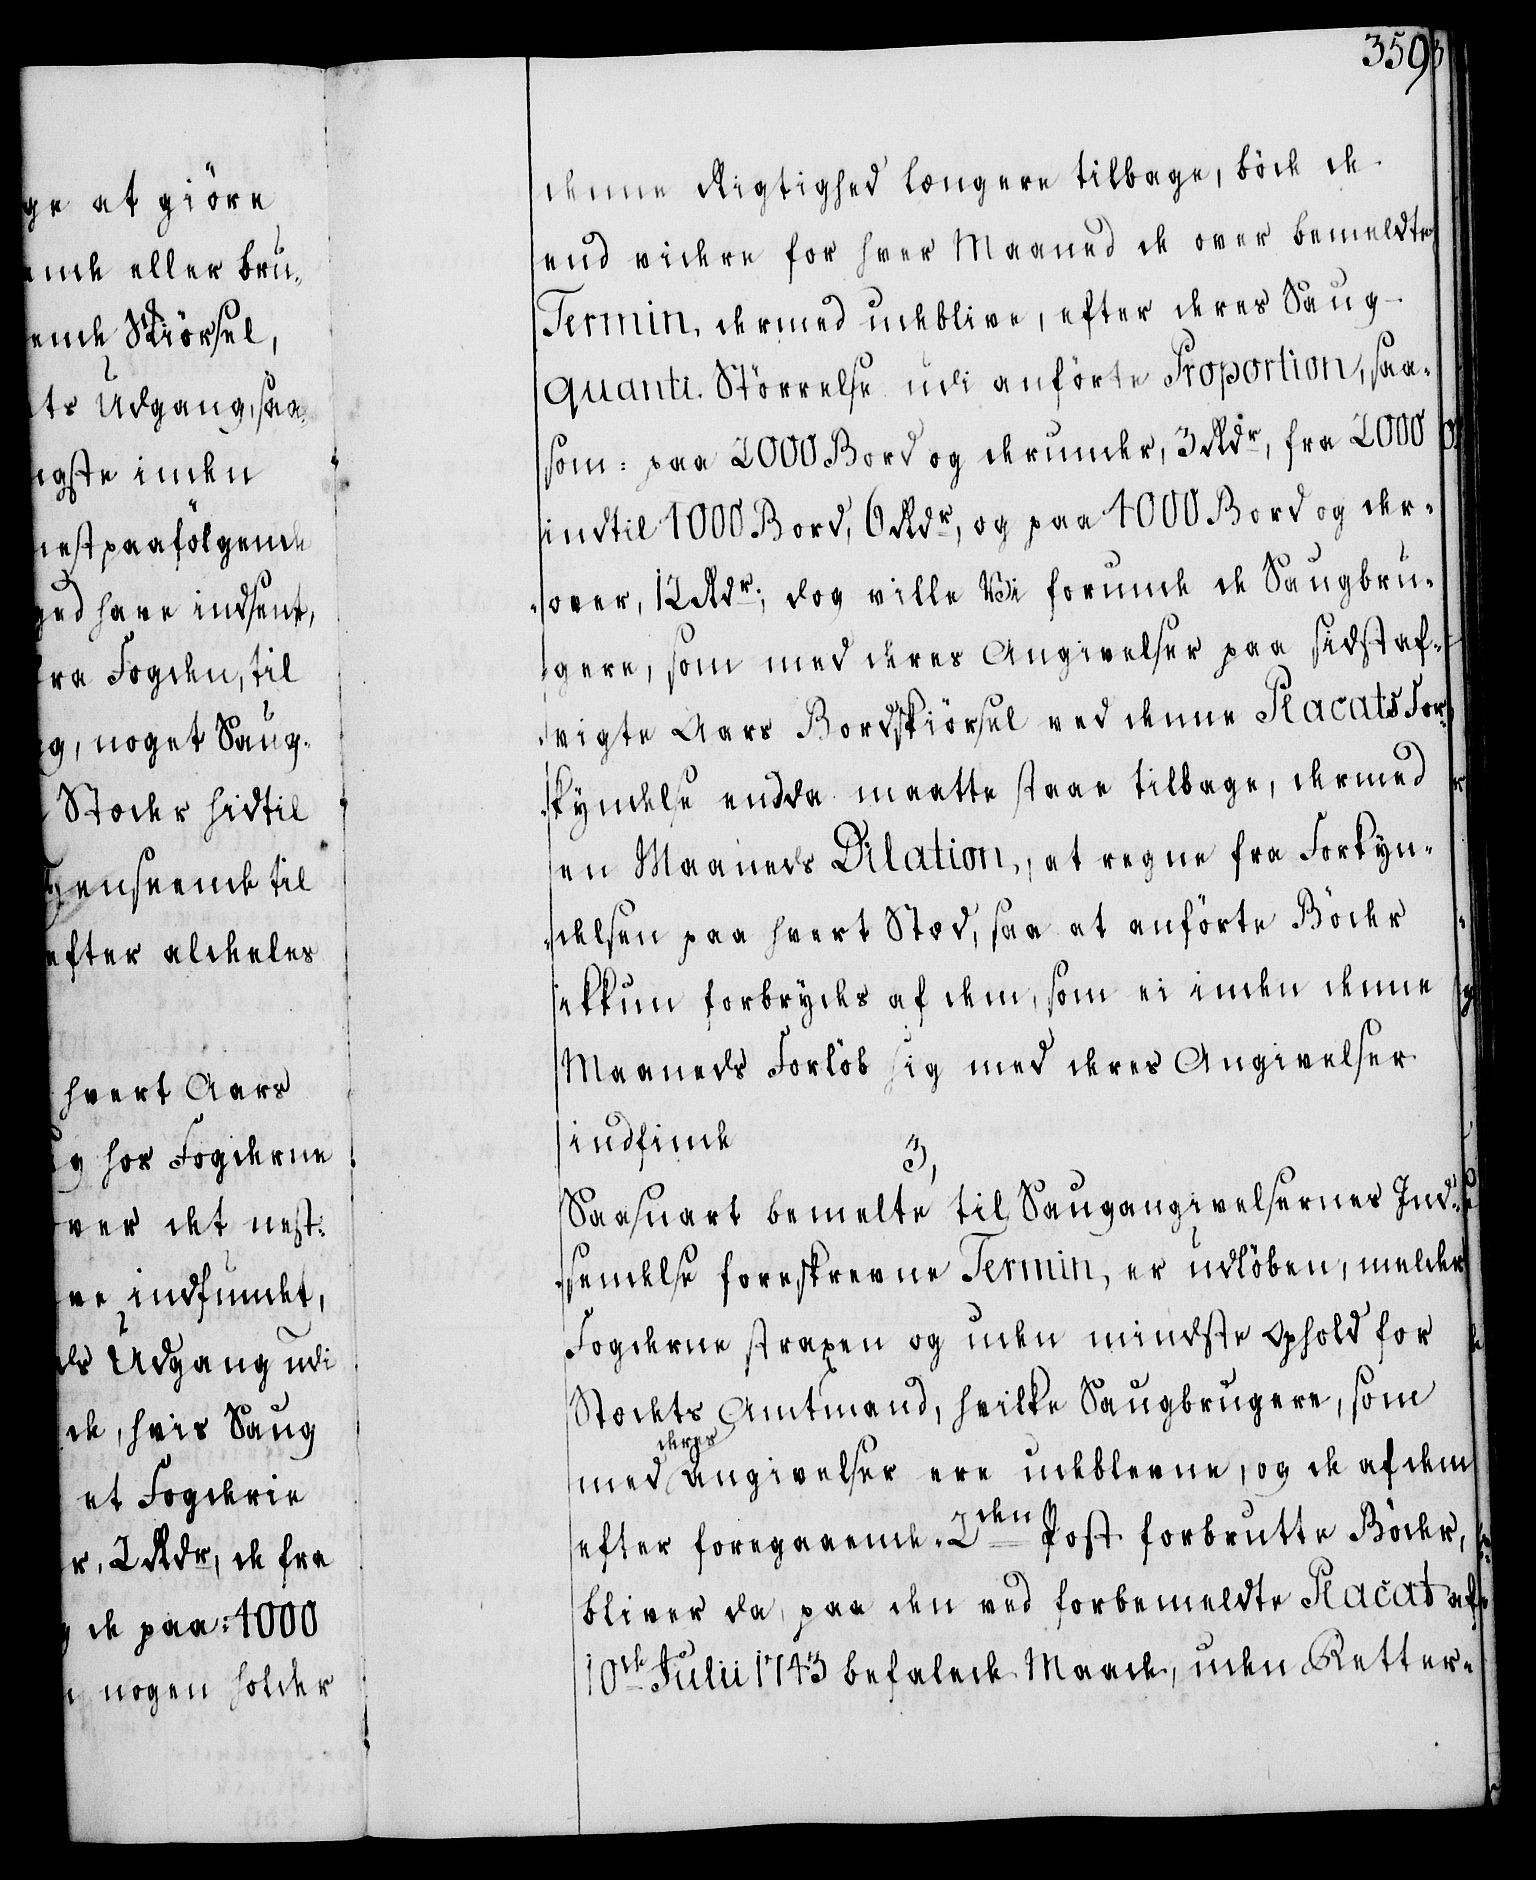 359
ge at giöre
ende eller bru-
ende Skiörsel,
ts Udgang, saa-
ngste inden
nestpaafölgende
ged have indsent,
ra Fogden, til
g, noget Saug-
Stæder hidtil
enseende til
efter aldeles
hvert Aars
hos Fogderne
ver det nest-
ve indfundet,
ds Udgang udi
de, hvis Saug
et Fogderie
r, 2 Rdr, de fra
de paa: 4000
nogen holder
denne Rigtighed længere tilbage, böde de
end videre for hver Maaned de over bemeldte
Termin, dermed udeblive, efter deres Saug-
quanti. Störrelse udi anförte Proportion, saa-
som: paa 2000 Bord og derunder, 3 Rdr, fra 2000
indtil 4000 Bord, 6 Rdr, og paa 4000 Bord og der-
over, 12 Rdr; dog ville Vi forunde de Saugbru-
gere, som med deres Angivelser paa sidst af-
vigte Aars Bordskiörsel ved denne Placats For-
kyndelse endda maatte staae tilbage, dermed
en Maaneds Dilation, at regne fra Forkyn-
delsen paa hvert Stæd, saa at anförte Böder
ikkun forbrydes af dem, som ei inden denne
Maaneds Forlöb sig med deres Angivelser
indfinde
3,
Saasnart bemelte til Saugangivelsernes Ind-
sendelse foreskrevne Termin, er udlöben, melder
Fogderne straxen og uden mindste Ophold for
Stædets Amtmand, hvilke Saugbrugere, som
med deres Angivelser ere udeblevne, og de af dem
efter foregaaende 2den Post forbrutte Böder,
bliver da, paa den ved forbemeldte Placat af
10de Julii 1743 befalede Maade, uden Retter-